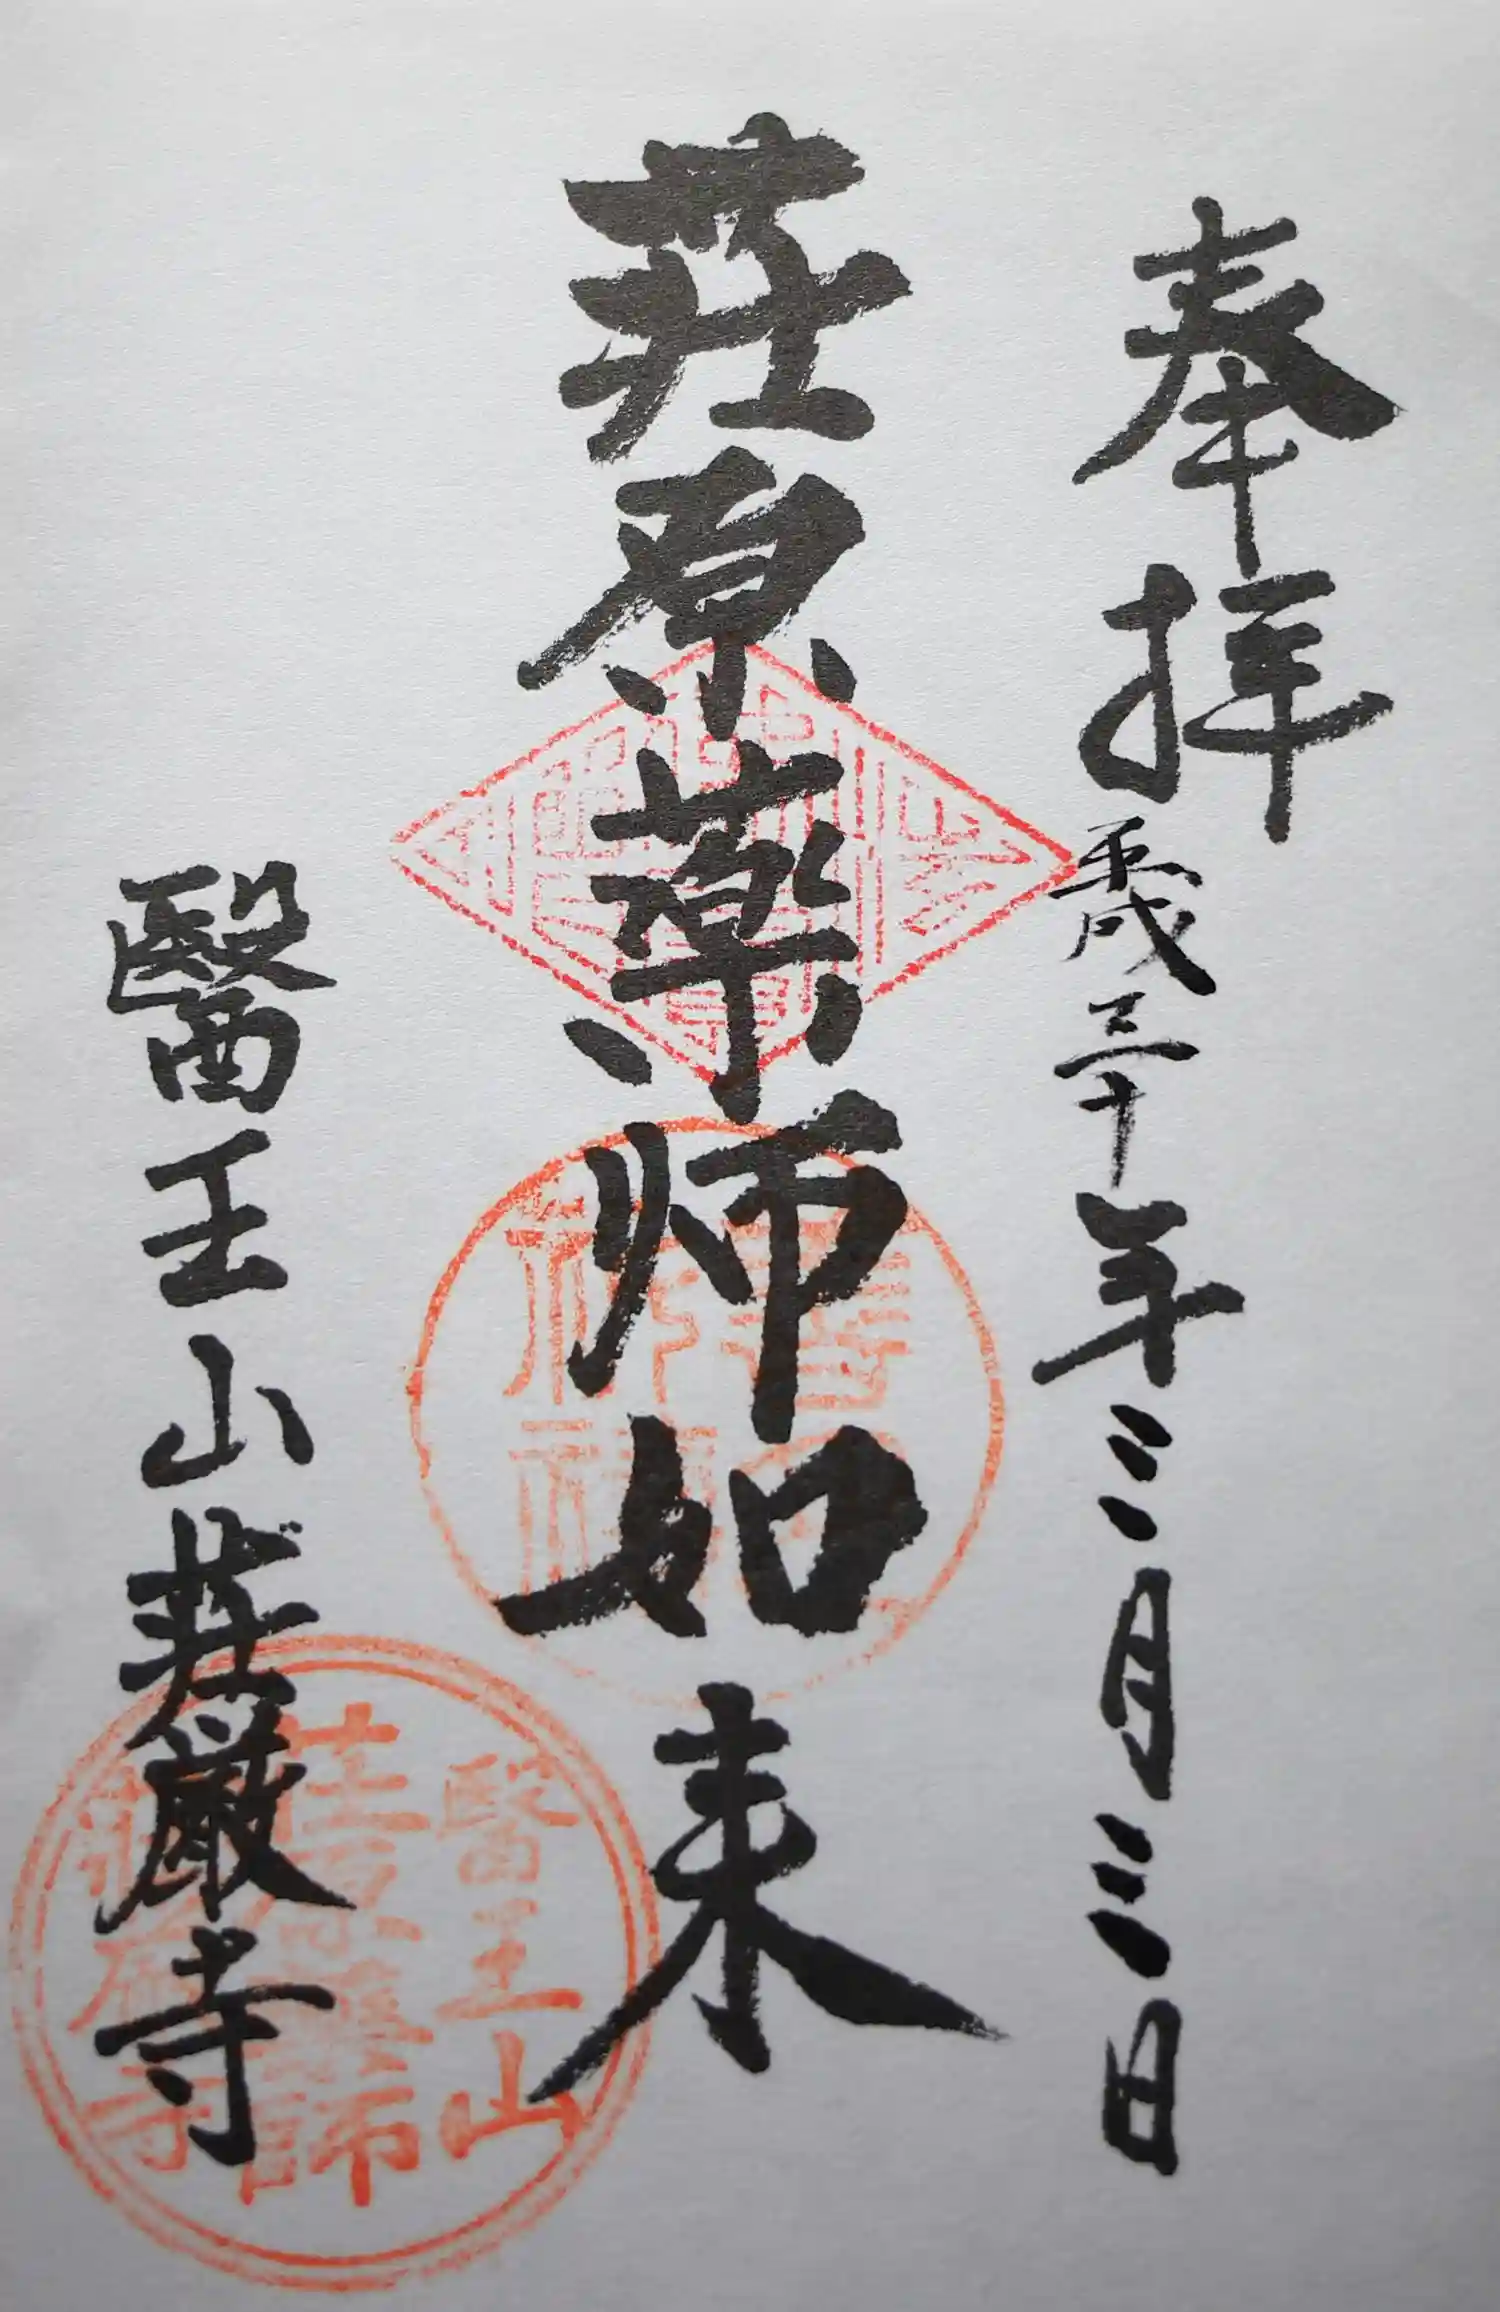 奉拝
平成三十年三月三日
荘原薬师如来
醫王山荘厳寺
醫王山
荘原薬師
荘厳寺